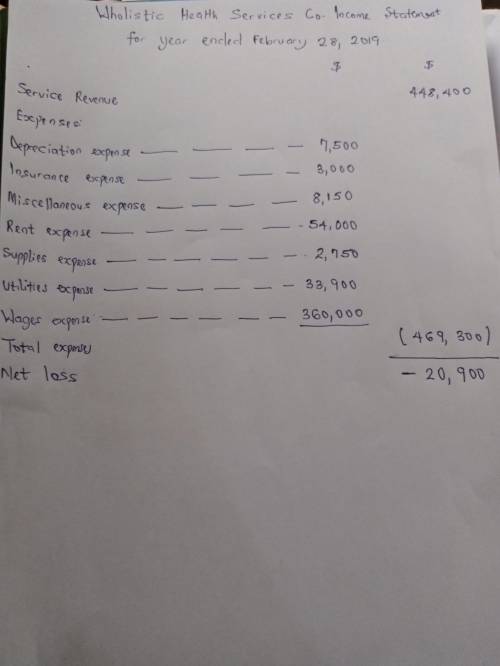 Wholistic Health Services Co. Income Statement
for year ended February 28, 2019
$ $
Service Revenue 448,400
Expenses:
Depreciation expense — — — — 7,500
Insurance expense — — — — 3,000
Miscellaneous expense — — — — 8,150
Rent expense — — — — — — 54,000
Supplies expense — — — — — — 2,750
Utilities expense — — — — — — 33,900
Wages expense — — — — — — 360,000
Total expenses (469,300)
Net loss - 20,900